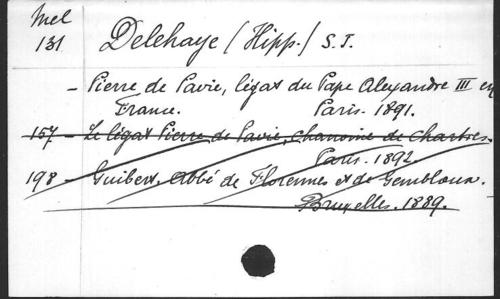 Mel
131 Delehaye (Hipp.) S.J.
- Pierre de Pavie, légat du Pape Alexandre III en
France. Paris. 1891.
157 - Le légat Pierre de Pavie, chanoine de Chartres.
Paris. 1892.
198 - Guibert, Abbé de Florennes et de Gembloux.
Bruxelles. 1889.